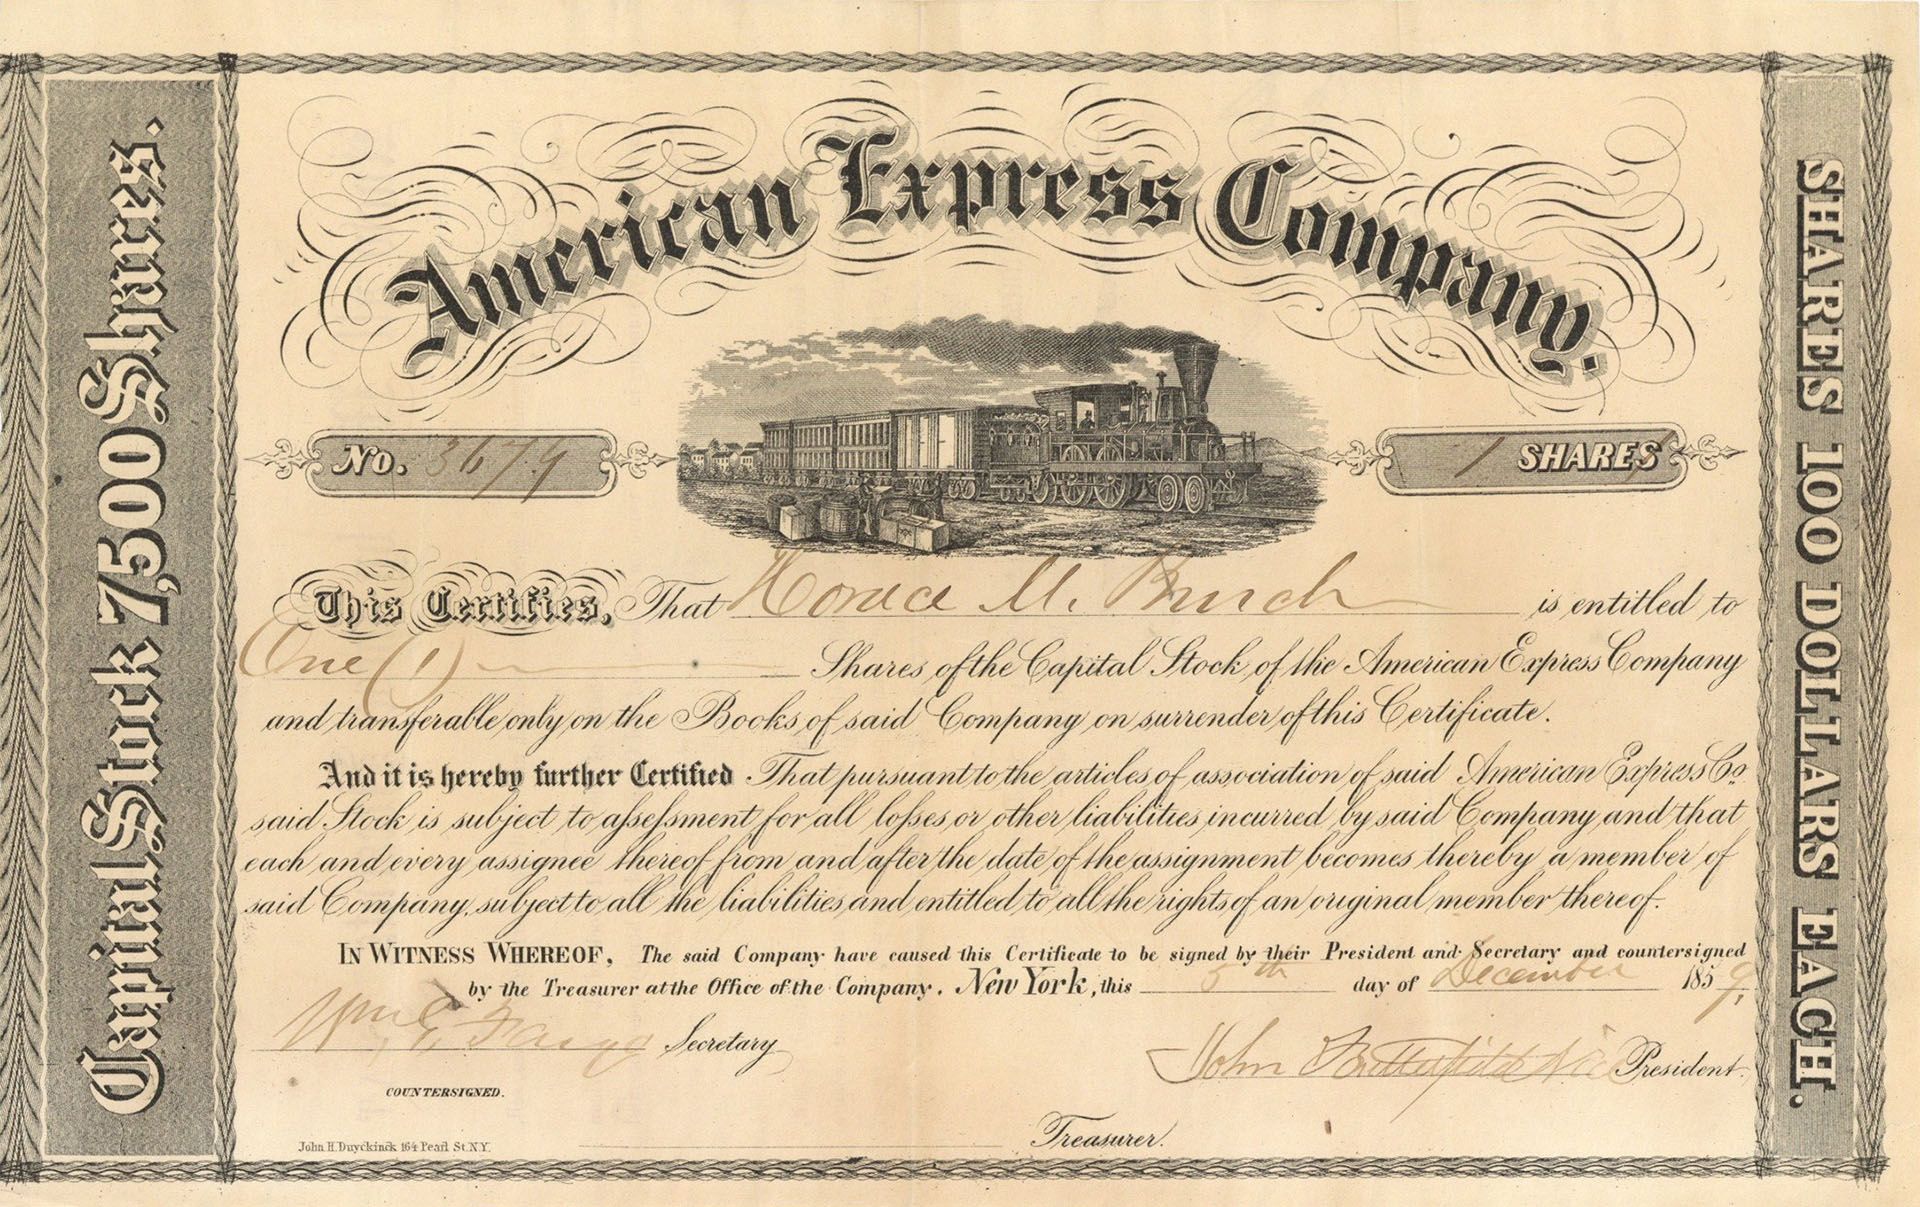 American Express Company.
Capital Stock 7,500 Shares.
SHARES 100 DOLLARS EACH.
No. 3679
1 SHARES
This Certifies, That Horace M. Burch is entitled to
One (1) Shares of the Capital Stock of the American Express Company
and transferable only on the Books of said Company on surrender of this Certificate.
And it is hereby further Certified That pursuant to the articles of association of said American Express Co.
said Stock is subject to assessment for all losses or other liabilities incurred by said Company and that
each and every assignee thereof from and after the date of the assignment becomes thereby a member of
said Company, subject to all the liabilities and entitled to all the rights of an original member thereof.
IN WITNESS WHEREOF, The said Company have caused this Certificate to be signed by their President and Secretary and countersigned
by the Treasurer at the Office of the Company. New York, this 5th day of December 1859,
Wm. G. Fargo Secretary
John Butterfield Vice President.
COUNTERSIGNED.
Treasurer.
John H. Duyckinck 164 Pearl St. N.Y.